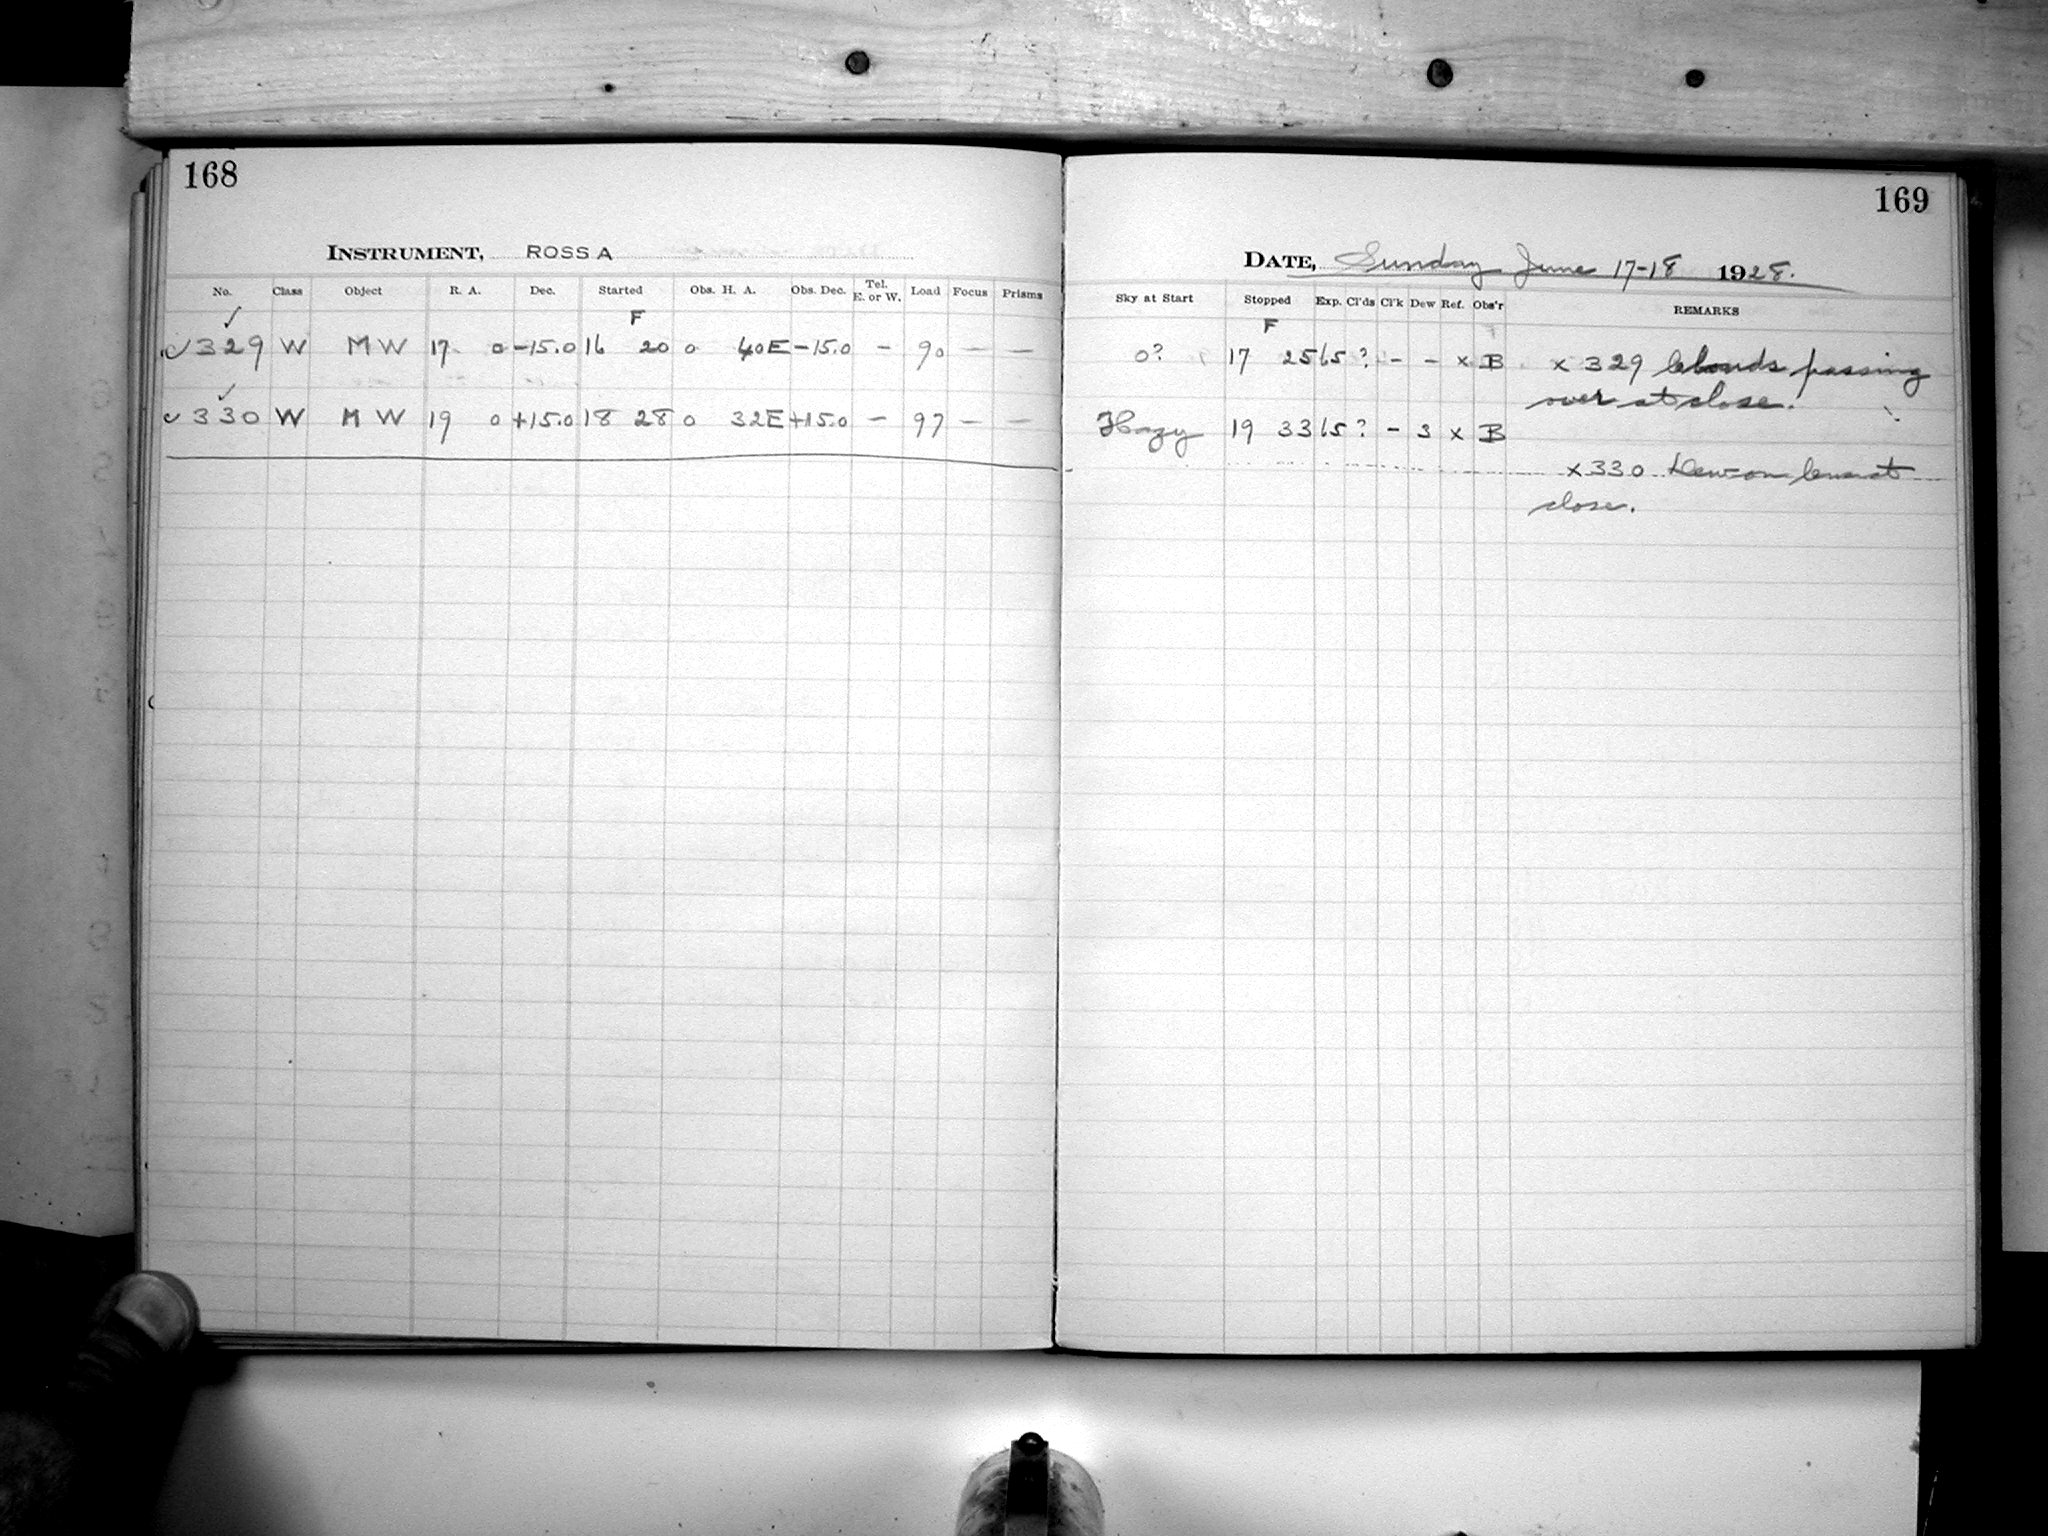 168
INSTRUMENT, ROSS A
No. Class Object R. A. Dec. Started Obs. H. A. Obs. Dec. Tel. E. or W. Load Focus Prisms
✓ F
✓ 329 W M W 17 0 -15.0 16 20 0 40E -15.0 - 90 - -
✓
✓ 330 W M W 19 0 +15.0 18 28 0 32E +15.0 - 97 - -
169
DATE, Sunday June 17-18 1928.
Sky at Start Stopped Exp. Cl'ds Cl'k Dew Ref. Obs'r REMARKS
F
0? 17 25 65 ? - - x B x 329 Clouds passing
over at close.
Hazy 19 33 65 ? - 3 x B
x 330 Dew on lens at
close.